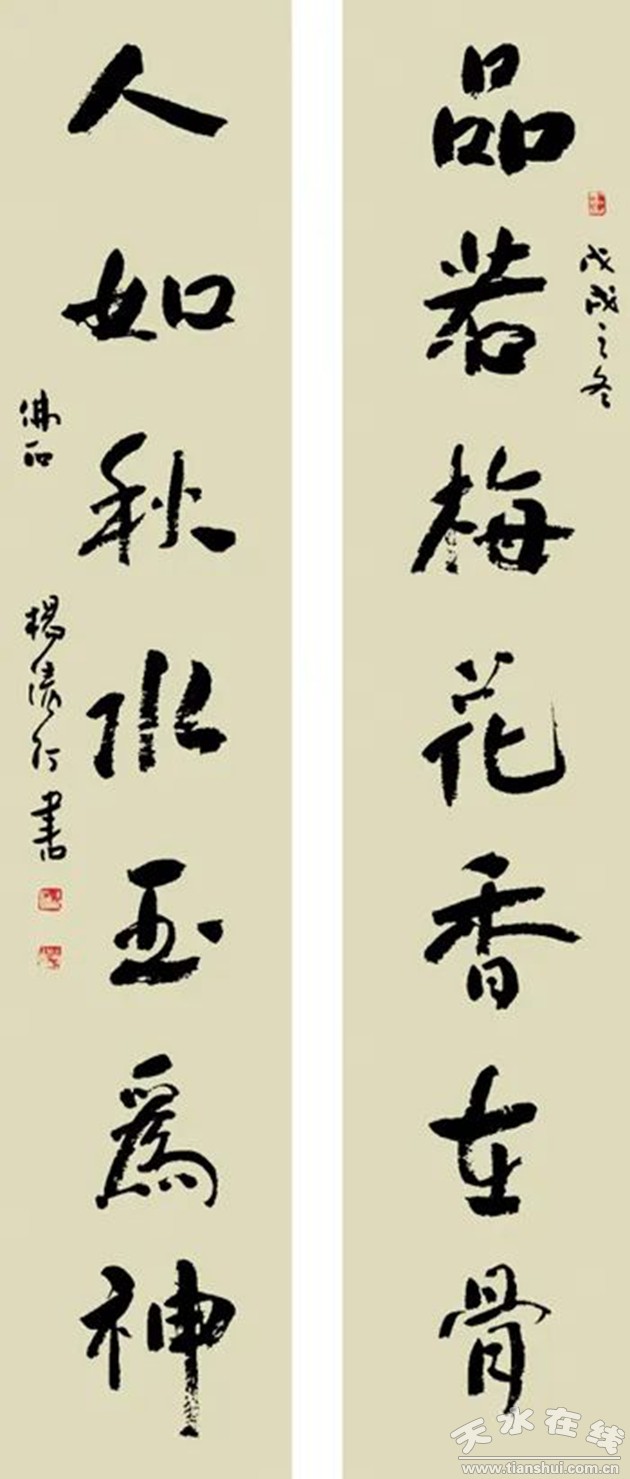 品若梅花香在骨
戊戌之冬
人如秋水玉爲神
佛石
楊清汀書
天水在线
www.tianshui.com.cn